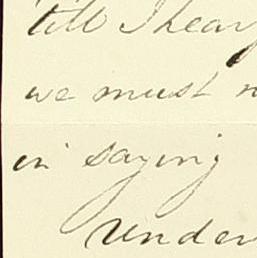 till I hear
we must
in saying
under